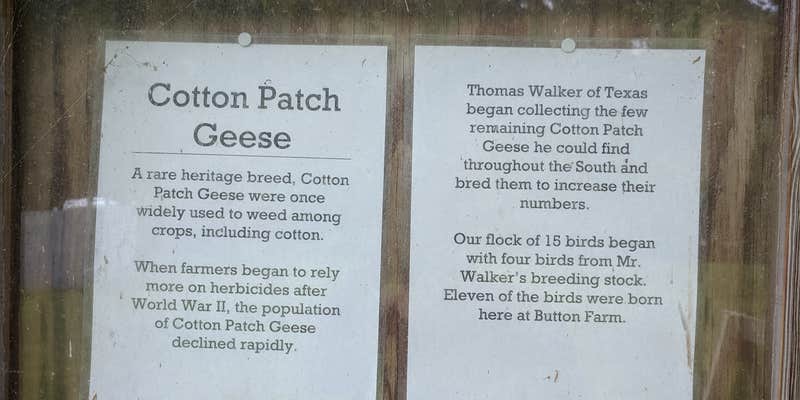 Cotton Patch
Geese
A rare heritage breed, Cotton
Patch Geese were once
widely used to weed among
crops, including cotton.
When farmers began to rely
more on herbicides after
World War II, the population
of Cotton Patch Geese
declined rapidly.
Thomas Walker of Texas
began collecting the few
remaining Cotton Patch
Geese he could find
throughout the South and
bred them to increase their
numbers.
Our flock of 15 birds began
with four birds from Mr.
Walker's breeding stock.
Eleven of the birds were born
here at Button Farm.